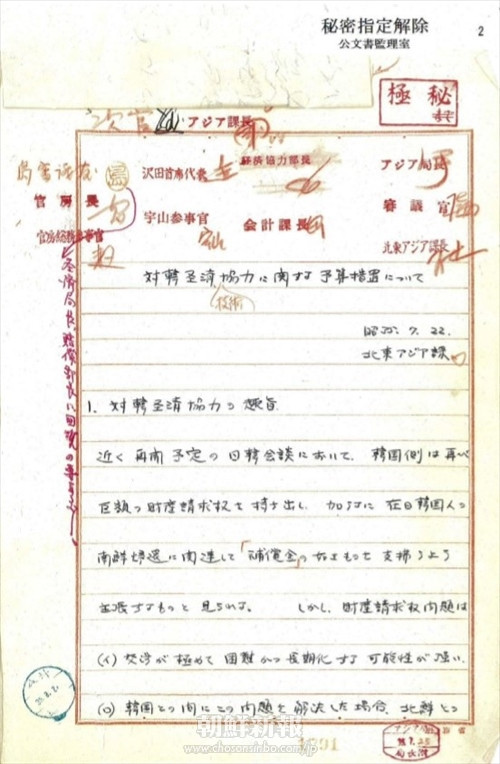 秘密指定解除
公文書監理室
2
極秘
次官 アジア課長
沢田首席代表 経済協力部長 アジア局長
官房長 宇山参事官 会計課長 審議官
官房総務参事官 北東アジア課長
対韓経済協力に関する予算措置について
技術
昭35.7.22.
北東アジア課
1. 対韓経済協力の趣旨
近く再開予定の日韓会談において、韓国側は再び
巨額の財産請求権を持ち出し、加うるに在日韓国人の
南鮮帰還に関連して「補償金」の如きものを支払うよう
主張するものと見られる。しかし、財産請求権問題は
(イ) 交渉が極めて困難かつ長期化する可能性が強い.
(ロ) 韓国との間にこの問題を解決した場合、北鮮との
朝鮮新報
www.chosonsinbo.com